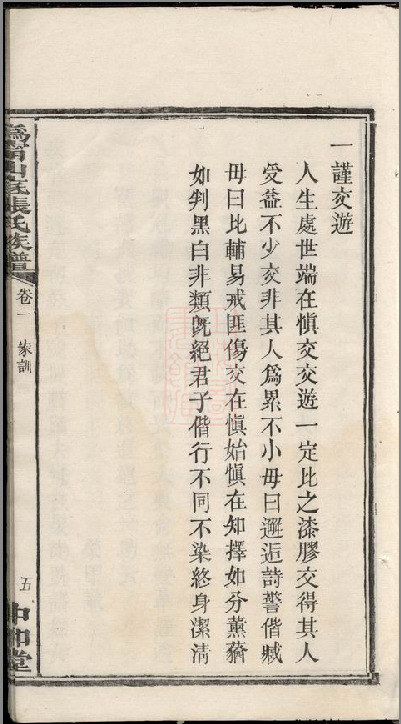 一謹交遊
人生處世端在慎交交遊一定比之漆膠交得其人
受益不少交非其人爲累不小毋曰邂逅詩警偕臧
毋曰比輔易戒匪傷交在慎始慎在知擇如分薰蕕
如判黑白非類既絕君子偕行不同不染終身潔清
山底張氏族譜
卷一
家訓
五
中和堂